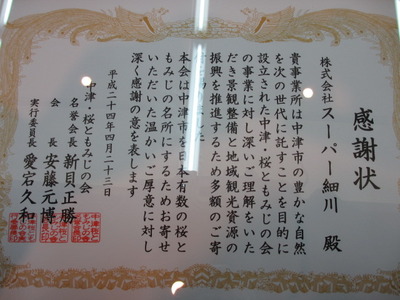 感謝状
株式会社
スーパー細川 殿
貴事業所は中津市の豊かな自然
を次の世代に託すことを目的に
設立された中津・桜ともみじの会
の事業に対し深いご理解をいた
だき景観整備と地域観光資源の
振興を推進するため多額のご寄
本会は中津市を日本有数の桜と
もみじの名所にするためお寄せ
いただいた温かいご厚意に対し
深く感謝の意を表します
平成二十四年四月二十三日
中津・桜ともみじの会
名誉会長 新貝正勝
会長 安藤元博
実行委員長 愛宕久和